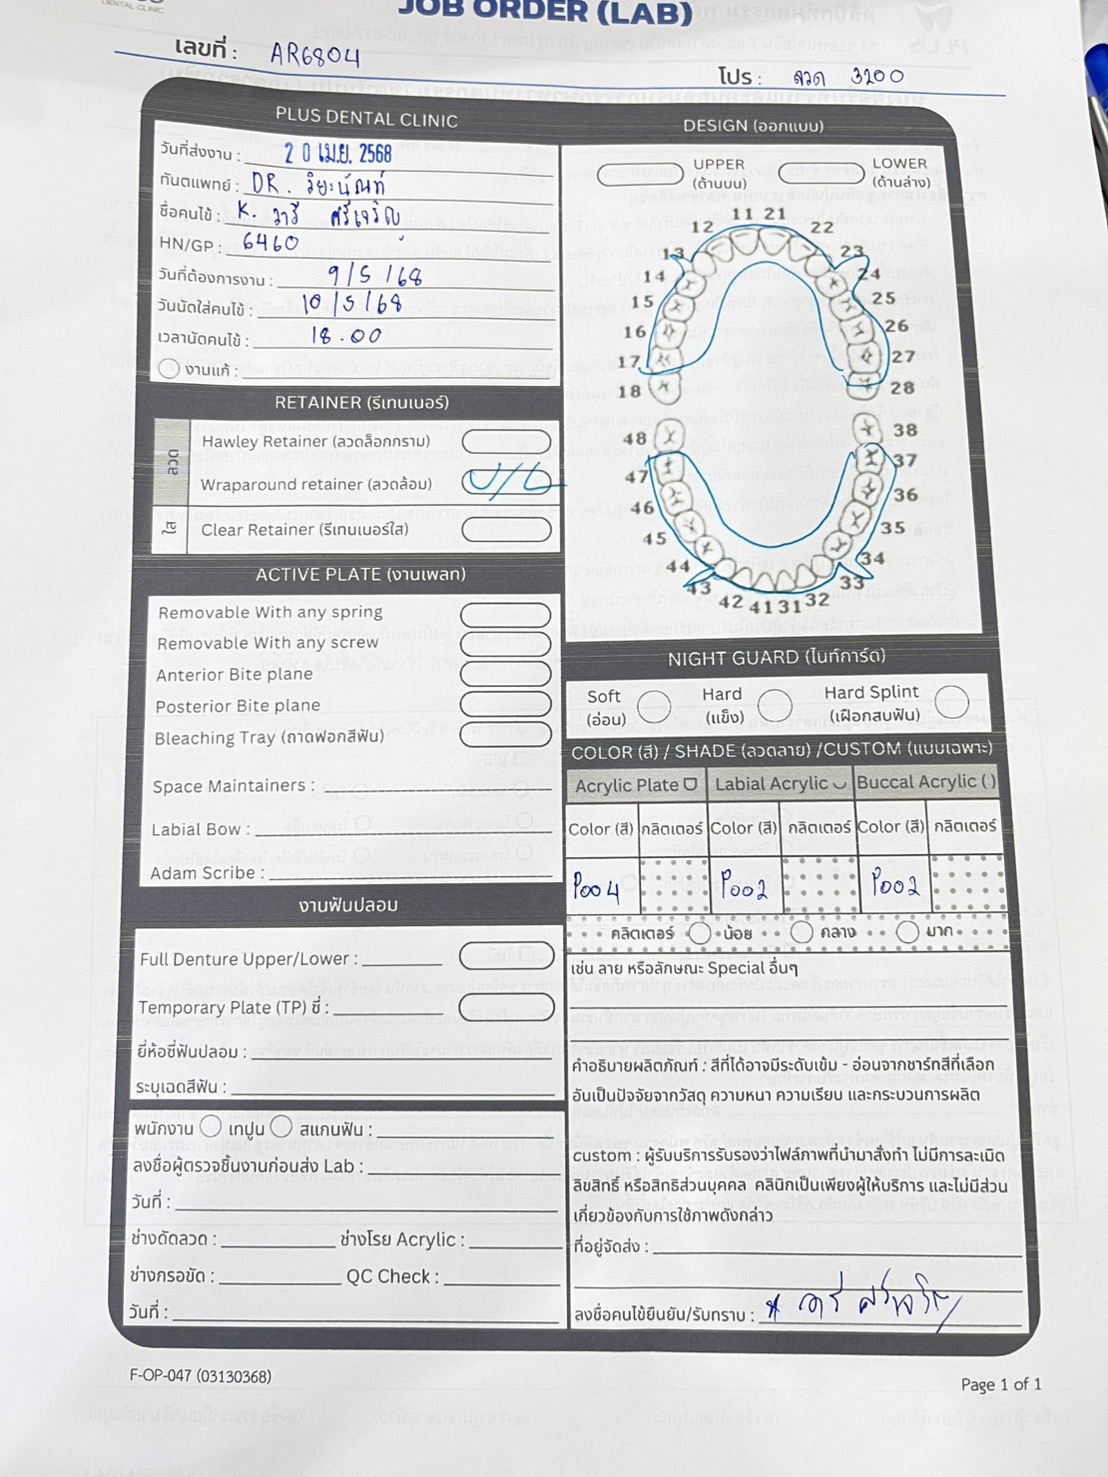 DENTAL CLINIC
JOB ORDER (LAB)
เลขที่ : AR6804
โปร : ลวด 3200
PLUS DENTAL CLINIC
วันที่ส่งงาน : 20 เม.ย. 2568
ทันตแพทย์ : DR.
ชื่อคนไข้ : K. วารี ศรีเจริญ
HN/GP : 6460
วันที่ต้องการงาน : 9/5/68
วันนัดใส่คนไข้ : 10/5/68
เวลานัดคนไข้ : 18.00
งานแก้ :
DESIGN (ออกแบบ)
UPPER
(ด้านบน)
LOWER
(ด้านล่าง)
11 21
12 22
13 23
14 24
15 25
16 26
17 27
18 28
48 38
47 37
46 36
45 35
44 34
43 33
42 41 31 32
RETAINER (รีเทนเนอร์)
ลวด
Hawley Retainer (ลวดล็อกกราม)
Wraparound retainer (ลวดล้อม) U/L
ใส
Clear Retainer (รีเทนเนอร์ใส)
ACTIVE PLATE (งานเพลท)
Removable With any spring
Removable With any screw
Anterior Bite plane
Posterior Bite plane
Bleaching Tray (ถาดฟอกสีฟัน)
Space Maintainers :
Labial Bow :
Adam Scribe :
งานฟันปลอม
Full Denture Upper/Lower :
Temporary Plate (TP) ซี่ :
ยี่ห้อซี่ฟันปลอม :
ระบุเฉดสีฟัน :
พนักงาน เทปูน สแกนฟัน :
ลงชื่อผู้ตรวจชิ้นงานก่อนส่ง Lab :
วันที่ :
ช่างดัดลวด : ช่างโรย Acrylic :
ช่างกรอขัด : QC Check :
วันที่ :
NIGHT GUARD (ไนท์การ์ด)
Soft
(อ่อน)
Hard
(แข็ง)
Hard Splint
(เฝือกสบฟัน)
COLOR (สี) / SHADE (ลวดลาย) /CUSTOM (แบบเฉพาะ)
Acrylic Plate Labial Acrylic Buccal Acrylic ( )
Color (สี) กลิตเตอร์ Color (สี) กลิตเตอร์ Color (สี) กลิตเตอร์
P004 P002 P002
กลิตเตอร์ น้อย กลาง มาก
เช่น ลาย หรือลักษณะ Special อื่นๆ
คำอธิบายผลิตภัณฑ์ : สีที่ได้อาจมีระดับเข้ม - อ่อนจากชาร์ทสีที่เลือก
อันเป็นปัจจัยจากวัสดุ ความหนา ความเรียบ และกระบวนการผลิต
custom : ผู้รับบริการรับรองว่าไฟล์ภาพที่นำมาสั่งทำ ไม่มีการละเมิด
ลิขสิทธิ์ หรือสิทธิส่วนบุคคล คลินิกเป็นเพียงผู้ให้บริการ และไม่มีส่วน
เกี่ยวข้องกับการใช้ภาพดังกล่าว
ที่อยู่จัดส่ง :
ลงชื่อคนไข้ยืนยัน/รับทราบ : * วารี ศรีเจริญ
F-OP-047 (03130368)
Page 1 of 1